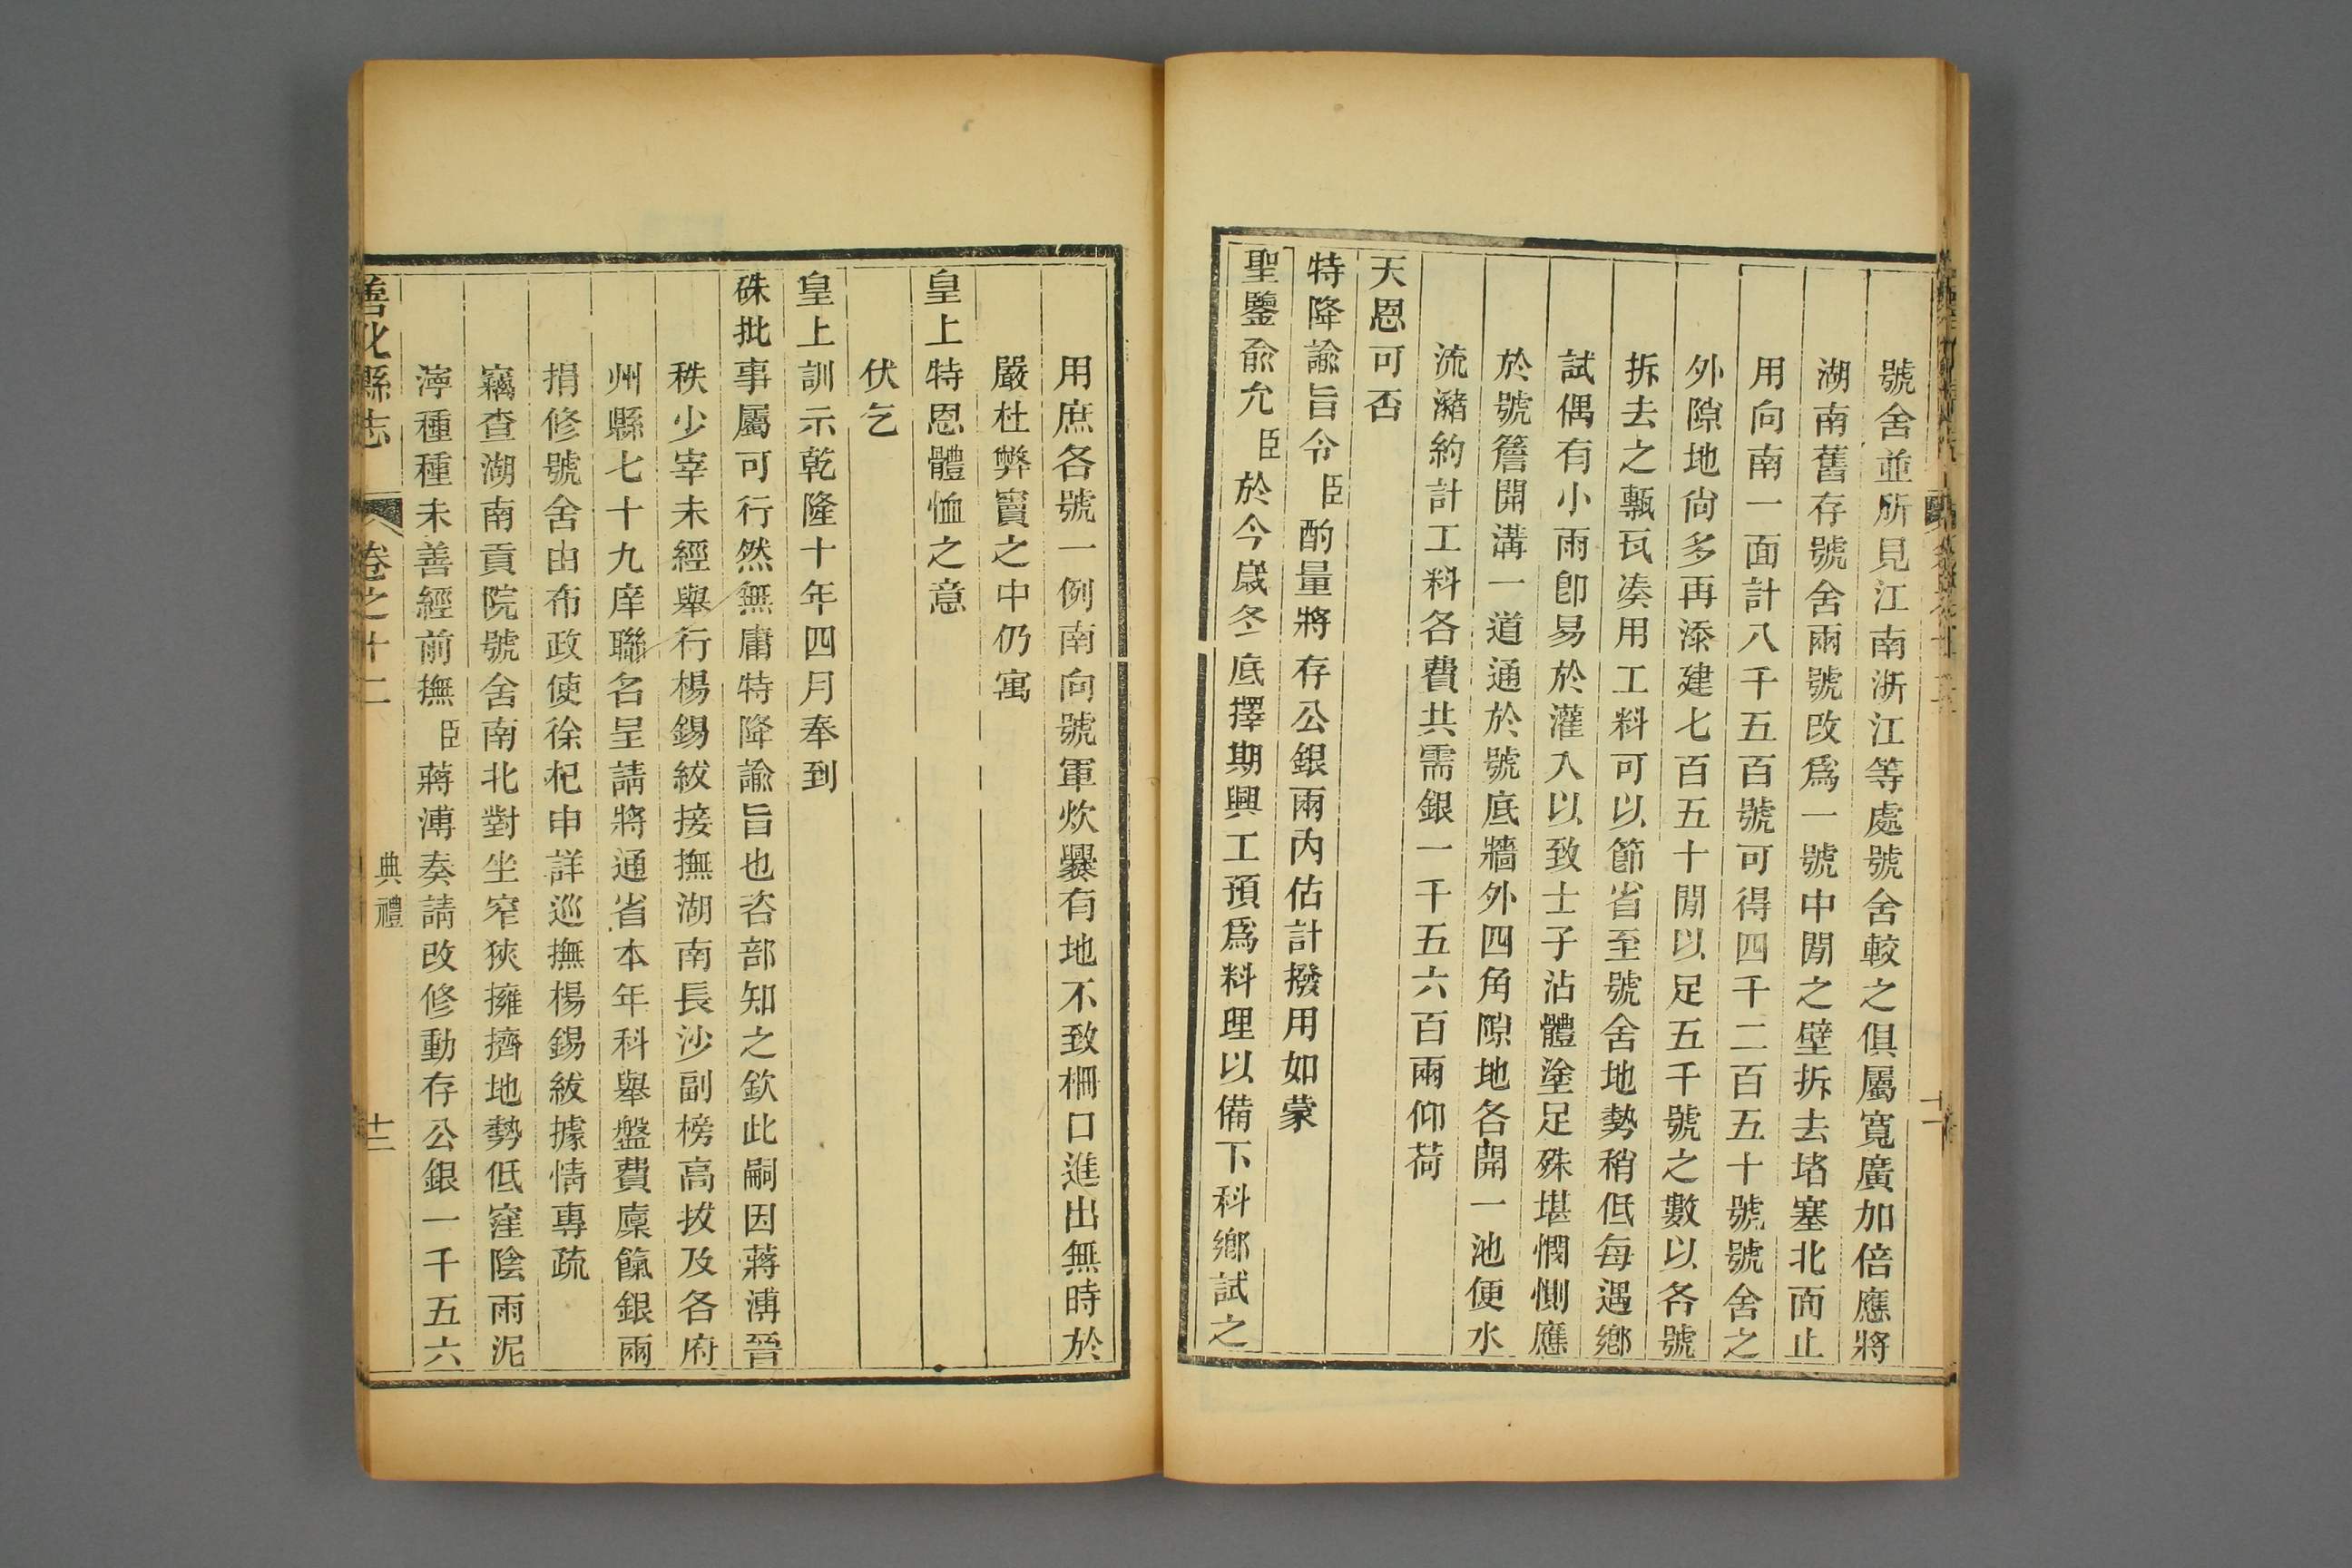 號舍並所見江南浙江等處號舍較之俱屬寬廣加倍應將
湖南舊存號舍兩號改爲一號中閒之壁拆去堵塞北面止
用向南一面計八千五百號可得四千二百五十號號舍之
外隙地尙多再添建七百五十閒以足五千號之數以各號
拆去之甎瓦凑用工料可以節省至號舍地勢稍低每遇鄉
試偶有小雨卽易於灌入以致士子沾體塗足殊堪憫惻應
於號簷開溝一道通於號底牆外四角隙地各開一池便水
流瀦約計工料各費共需銀一千五六百兩仰荷
天恩可否
特降諭旨令臣酌量將存公銀兩內估計撥用如蒙
聖鑒俞允臣於今歲冬底擇期興工預爲料理以備下科鄉試之
用庶各號一例南向號軍炊爨有地不致柵口進出無時於
嚴杜弊竇之中仍寓
皇上特恩體恤之意
伏乞
皇上訓示乾隆十年四月奉到
硃批事屬可行然無庸特降諭旨也咨部知之欽此嗣因蔣溥晉
秩少宰未經舉行楊錫紱接撫湖南長沙副榜高拔及各府
州縣七十九庠聯名呈請將通省本年科舉盤費廩餼銀兩
捐修號舍由布政使徐杞申詳巡撫楊錫紱據情專疏
竊查湖南貢院號舍南北對坐窄狹擁擠地勢低窪陰雨泥
濘種種未善經前撫臣蔣溥奏請改修動存公銀一千五六
善化縣志 卷之十二 典禮 十二